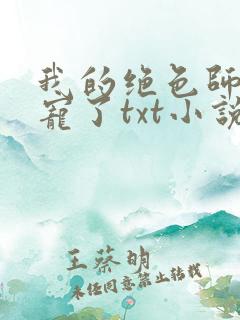 我的绝色师
宠了txt小说
王蔡明
未经同意禁止转载